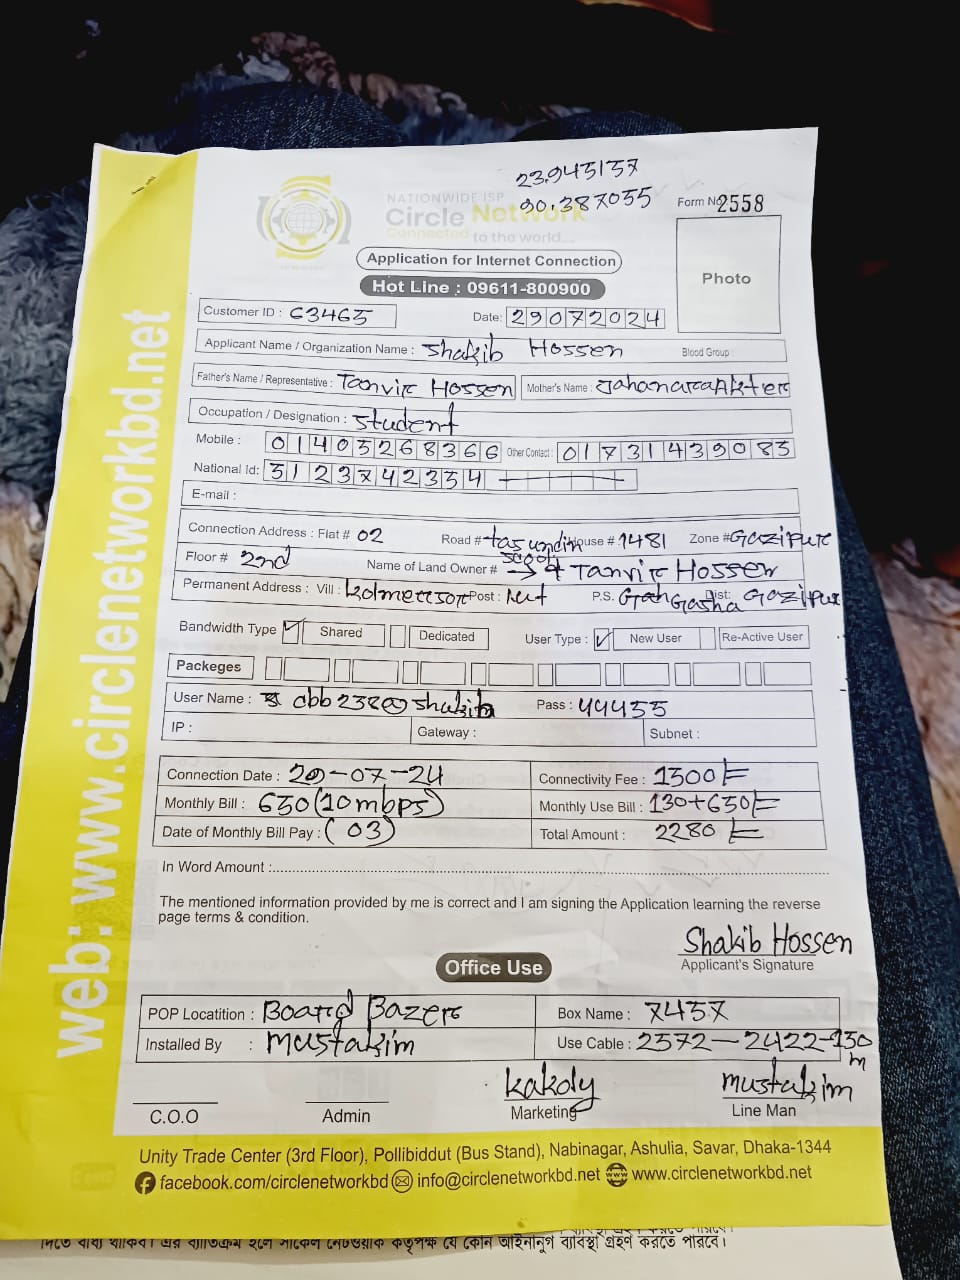 23.945157
90.387055
NATIONWIDE ISP
Circle Network
Connected to the world...
Form No 2558
Application for Internet Connection
Photo
Hot Line : 09611-800900
Customer ID : 63465 Date: 29072024
Applicant Name / Organization Name : Shakib Hossen Blood Group :
Father's Name / Representative : Tanvir Hossen Mother's Name : Jahanara Akter
Occupation / Designation : Student
Mobile : 01405268366 Other Contact : 01731439083
National Id: 5123742354
E-mail :
Connection Address : Flat # 02 Road # House # 1481 Zone # Gazipur
Floor # 2nd Name of Land Owner # → Tanvir Hossen
Permanent Address : Vill : Post : P.S. Dist: Gazipur
Bandwidth Type ✓ Shared Dedicated User Type : ✓ New User Re-Active User
Packeges
User Name : cbb238@shakib Pass : 44455
IP : Gateway : Subnet :
Connection Date : 29-07-24 Connectivity Fee : 1500/=
Monthly Bill : 650 (10mbps) Monthly Use Bill : 130+650/=
Date of Monthly Bill Pay : (03) Total Amount : 2280/=
In Word Amount :
The mentioned information provided by me is correct and I am signing the Application learning the reverse
page terms & condition.
Shakib Hossen
Applicant's Signature
Office Use
POP Locatition : Board Bazer Box Name : 7457
Installed By : Mustakim Use Cable : 2572-2422-150m
kakoly mustakim
C.O.O Admin Marketing Line Man
Unity Trade Center (3rd Floor), Pollibiddut (Bus Stand), Nabinagar, Ashulia, Savar, Dhaka-1344
facebook.com/circlenetworkbd info@circlenetworkbd.net www.circlenetworkbd.net
web: www.circlenetworkbd.net
দিতে বাধ্য থাকিব। এর ব্যতিক্রম হলে সার্কেল নেটওয়ার্ক কতৃপক্ষ যে কোন আইনানুগ ব্যাবস্থা গ্রহণ করতে পারবে।